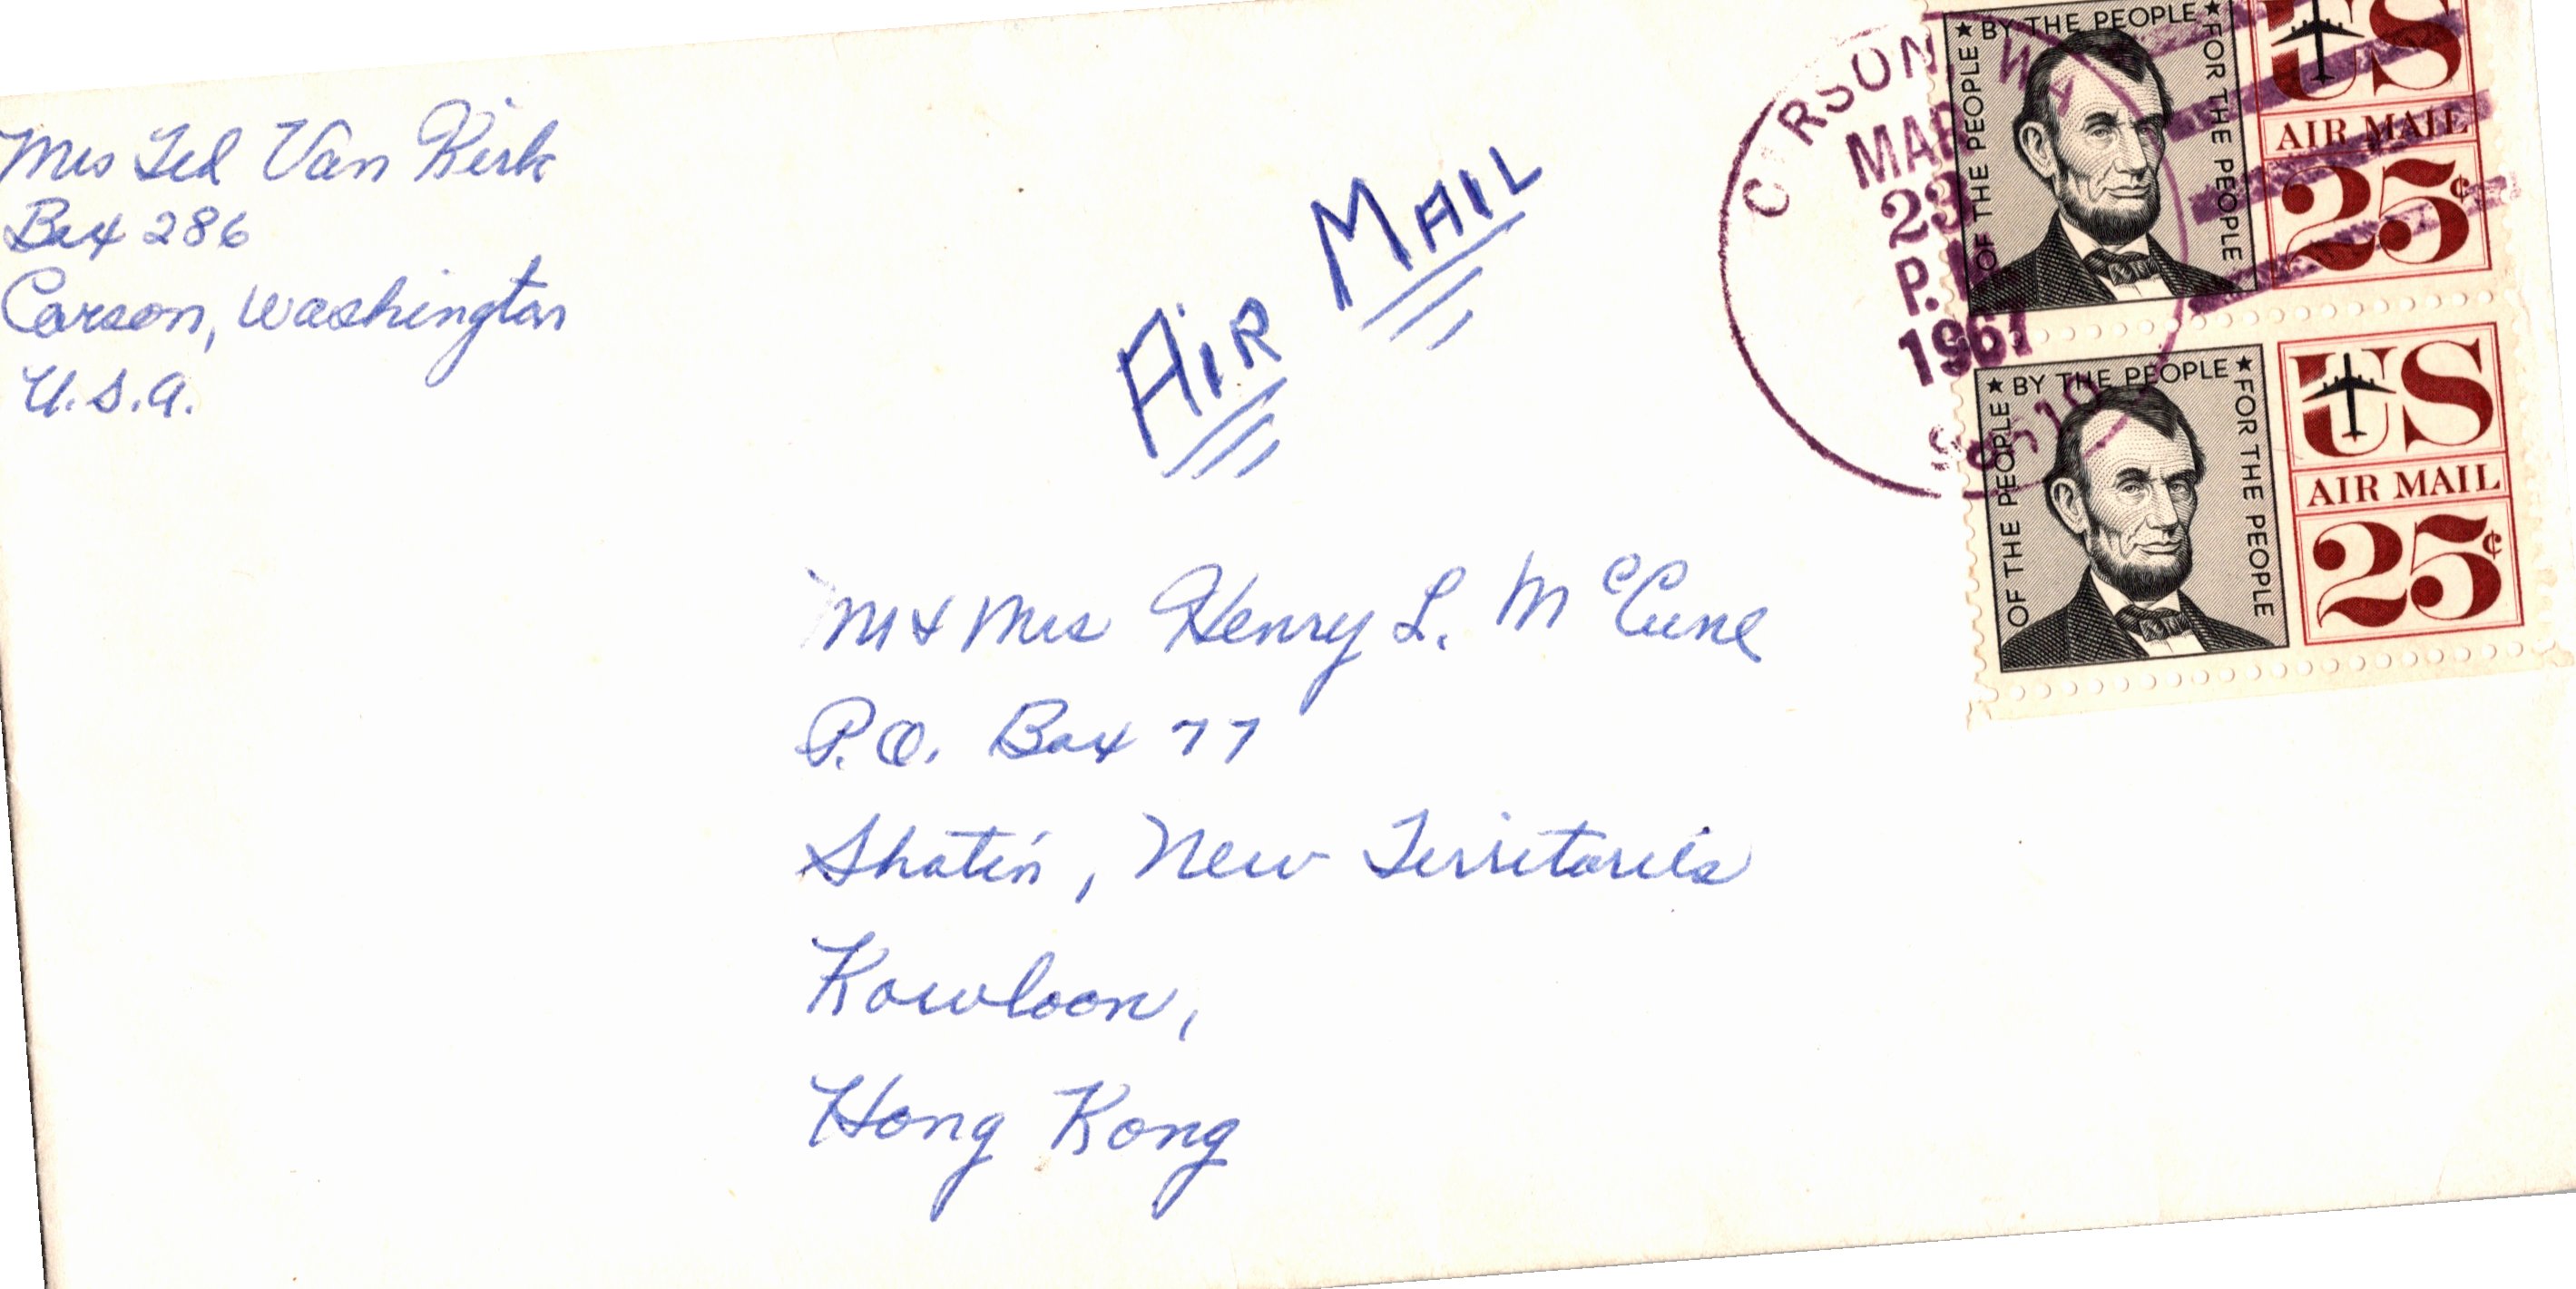 Mrs Ted Van Kirk
Box 286
Carson, Washington
U.S.A.
AIR MAIL
CARSON, WA
MAR
23
P.M
1967
★ BY THE PEOPLE ★
OF THE PEOPLE
FOR THE PEOPLE
US
AIR MAIL
25¢
★ BY THE PEOPLE ★
OF THE PEOPLE
FOR THE PEOPLE
US
AIR MAIL
25¢
M & Mrs Henry L. McCune
P.O. Box 77
Shatin, New Territories
Kowloon,
Hong Kong